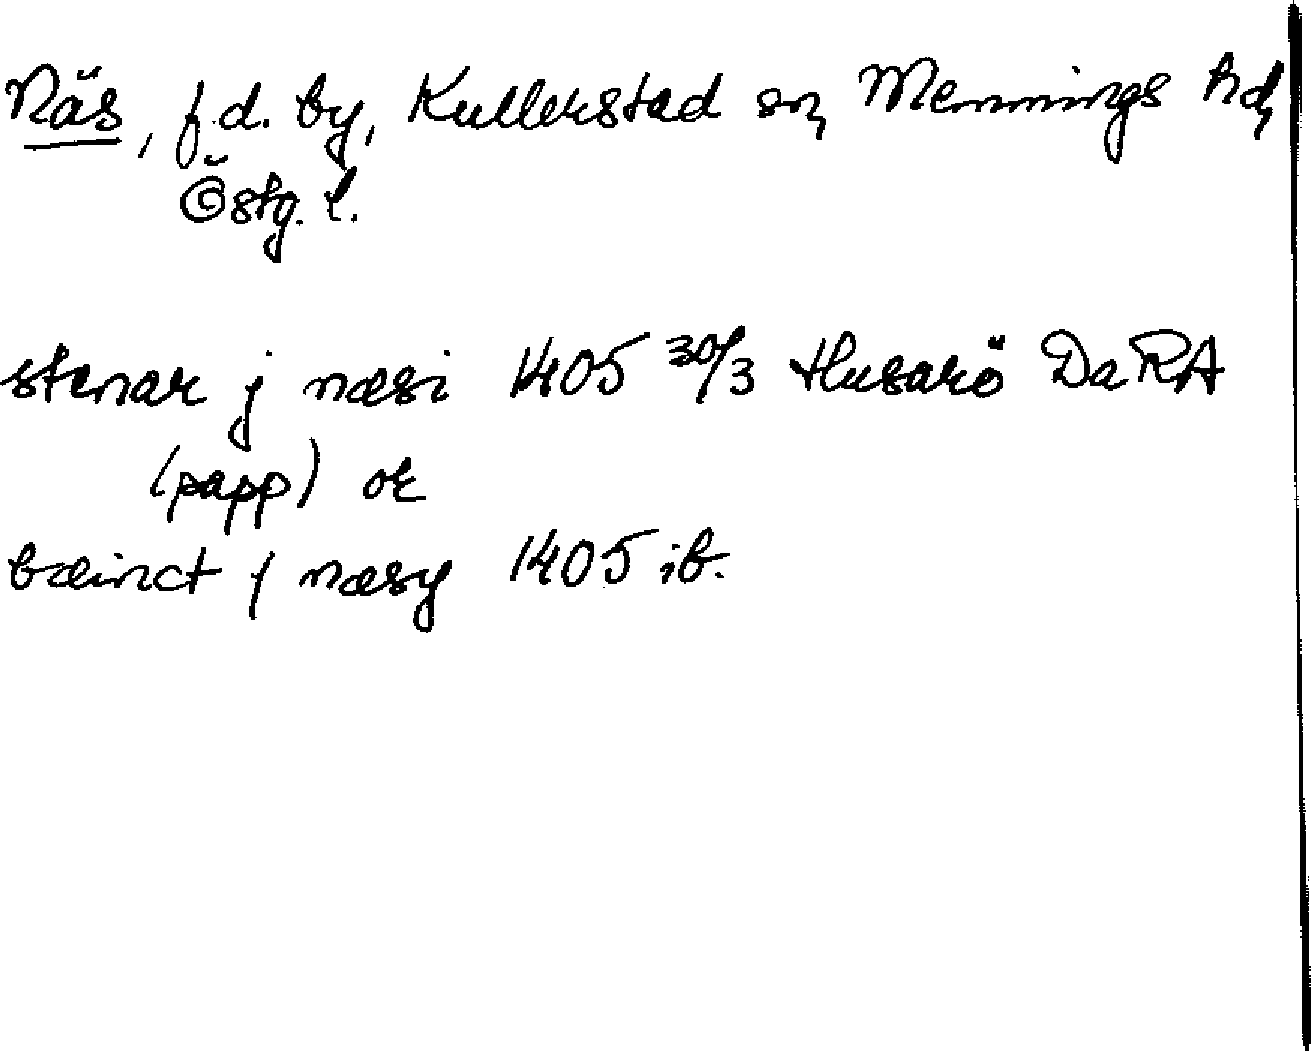 Näs, f.d. by, Kullerstad sn, Memmings hd,
Östg. l.
stenar j næsi 1405 30/3 Husarö DaRA
(papp) ok
bæinct j næsy 1405 ib.